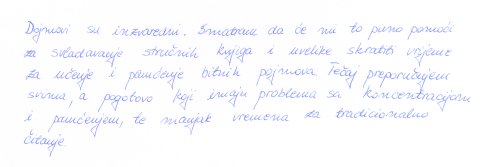 Dojmovi su izvanredni. Smatram da će mi to puno pomoći
za svladavanje stručnih knjiga i uvelike skratiti vrijeme
za učenje i pamćenje bitnih pojmova. Tečaj preporučujem
svima, a pogotovo koji imaju problema sa koncentracijom
i pamćenjem, te manjak vremena za tradicionalno
čitanje.